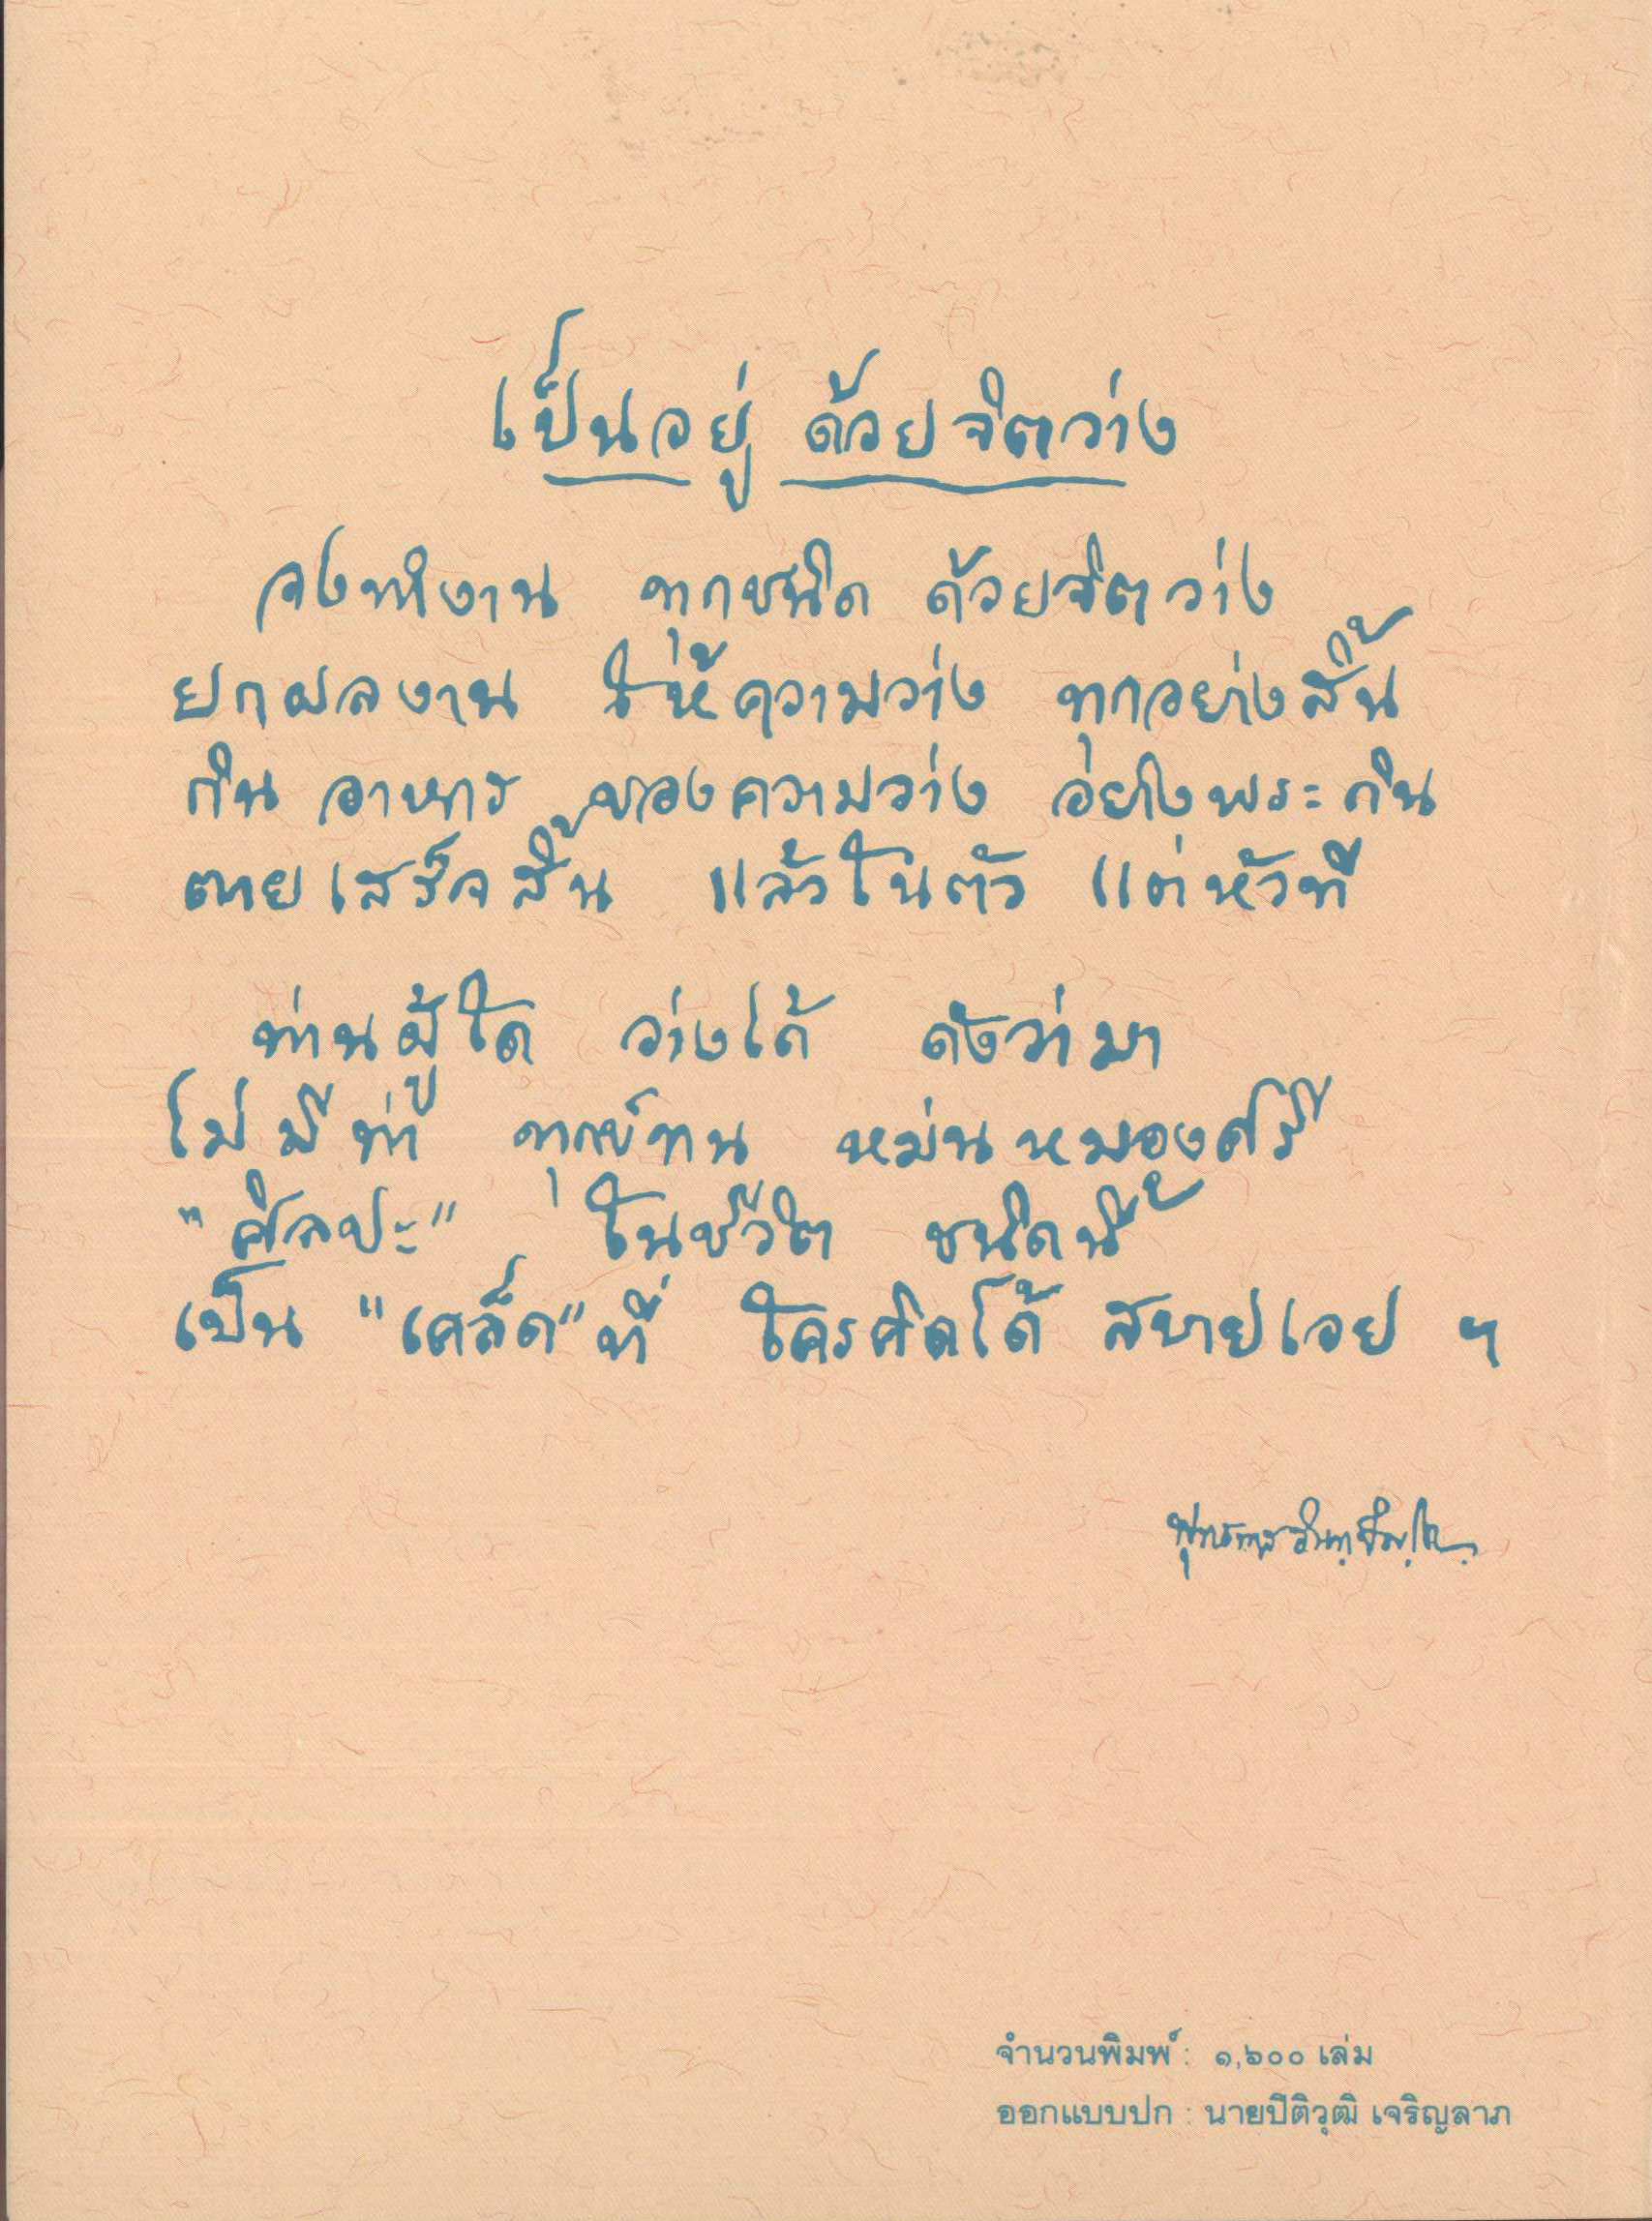 เป็นอยู่ ด้วยจิตว่าง
จงทำงาน ทุกชนิด ด้วยจิตว่าง
ยกผลงาน ให้ความว่าง ทุกอย่างสิ้น
กินอาหาร ของความว่าง อย่างพระกิน
ตายเสร็จสิ้น แล้วในตัว แต่หัวที
ท่านผู้ใด ว่างได้ ดังว่ามา
ไม่มีท่า ทุกข์ทน หม่นหมองศรี
"ศิลปะ" ในชีวิต ชนิดนี้
เป็น "เคล็ด" ที่ ใครคิดได้ สบายเอย ฯ
พุทธทาส อินทปัญโญ
จำนวนพิมพ์ : ๑,๖๐๐ เล่ม
ออกแบบปก : นายปีติวุฒิ เจริญลาภ